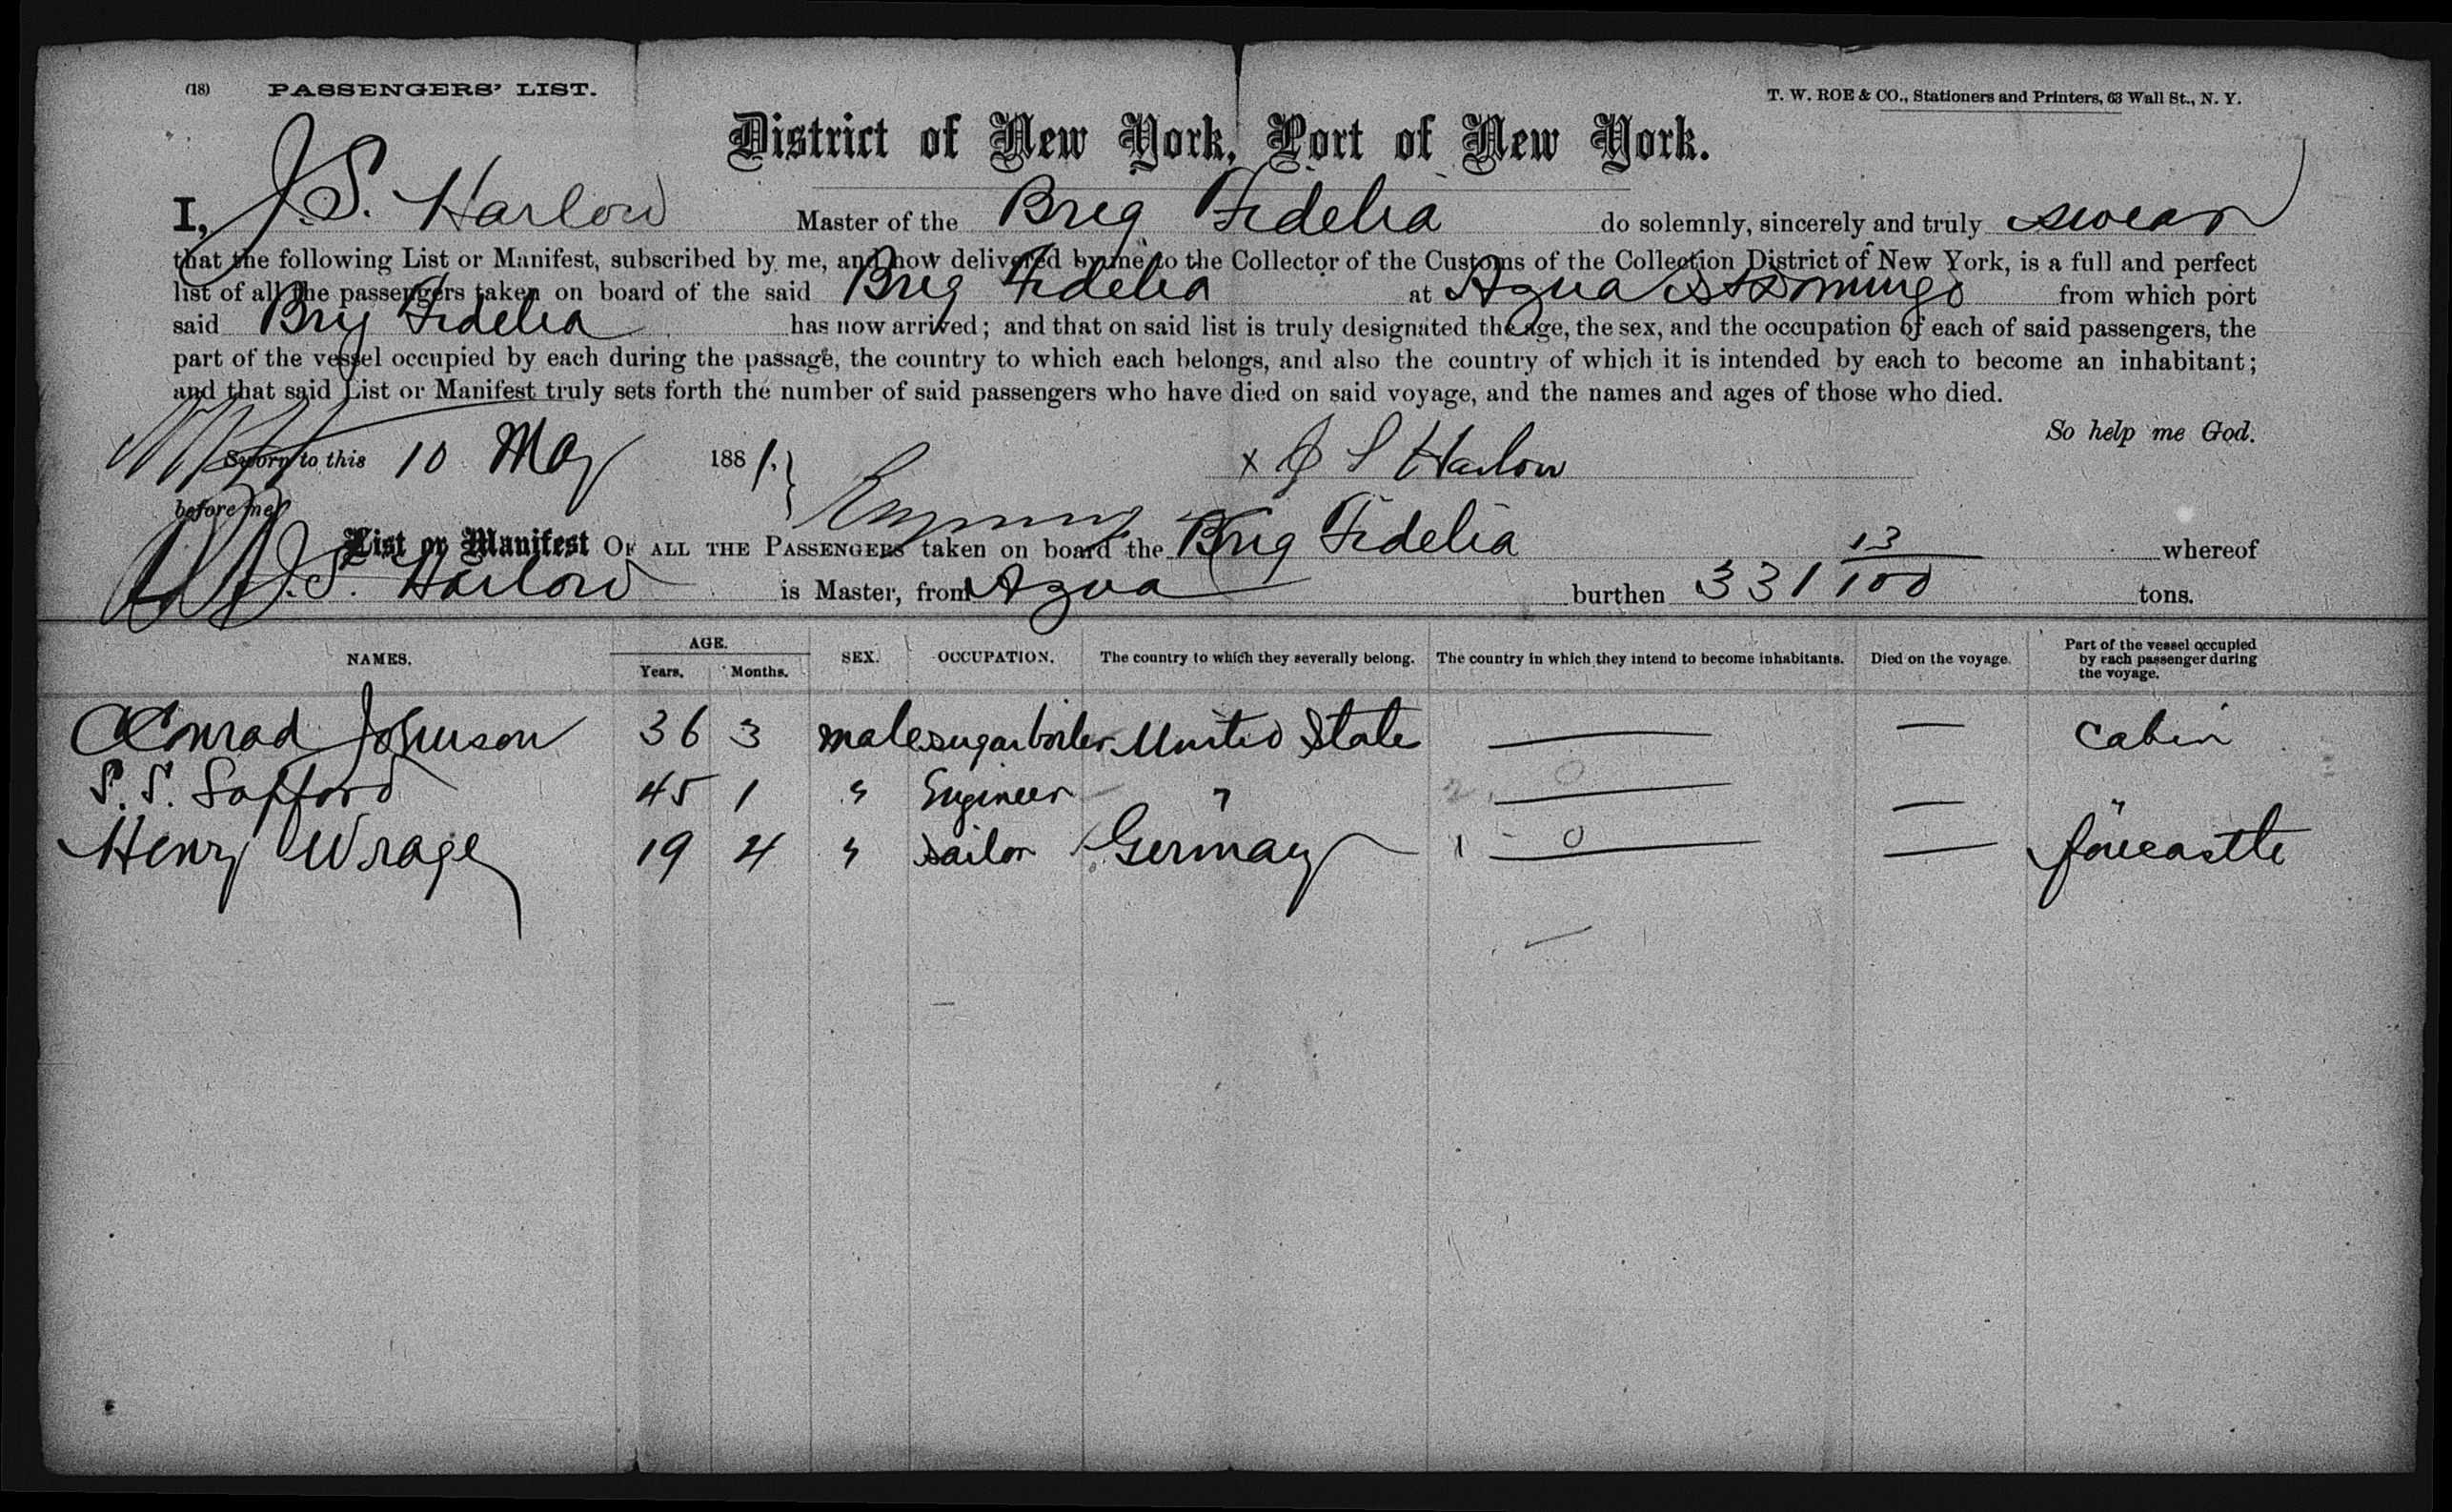 (18) PASSENGERS' LIST. T. W. ROE & CO., Stationers and Printers, 63 Wall St., N. Y.
District of New York, Port of New York.
I, J. S. Harlow Master of the Brig Fidelia do solemnly, sincerely and truly swear
that the following List or Manifest, subscribed by me, and now delivered by me to the Collector of the Customs of the Collection District of New York, is a full and perfect
list of all the passengers taken on board of the said Brig Fidelia at Azua St Domingo from which port
said Brig Fidelia has now arrived; and that on said list is truly designated the age, the sex, and the occupation of each of said passengers, the
part of the vessel occupied by each during the passage, the country to which each belongs, and also the country of which it is intended by each to become an inhabitant;
and that said List or Manifest truly sets forth the number of said passengers who have died on said voyage, and the names and ages of those who died.
So help me God.
Sworn to this 10 May 1881. x J S Harlow
before me
List or Manifest OF ALL THE PASSENGERS taken on board the Brig Fidelia whereof
J. S. Harlow is Master, from Azua burthen 331 13/100 tons.
NAMES. AGE. Years. Months. SEX. OCCUPATION. The country to which they severally belong. The country in which they intend to become inhabitants. Died on the voyage. Part of the vessel occupied by each passenger during the voyage.
Conrad Johnson 36 3 male sugar boiler United State — — cabin
S. S. Safford 45 1 " Engineer " — — "
Henry Wrage 19 4 " sailor Germany 1 — — forecastle